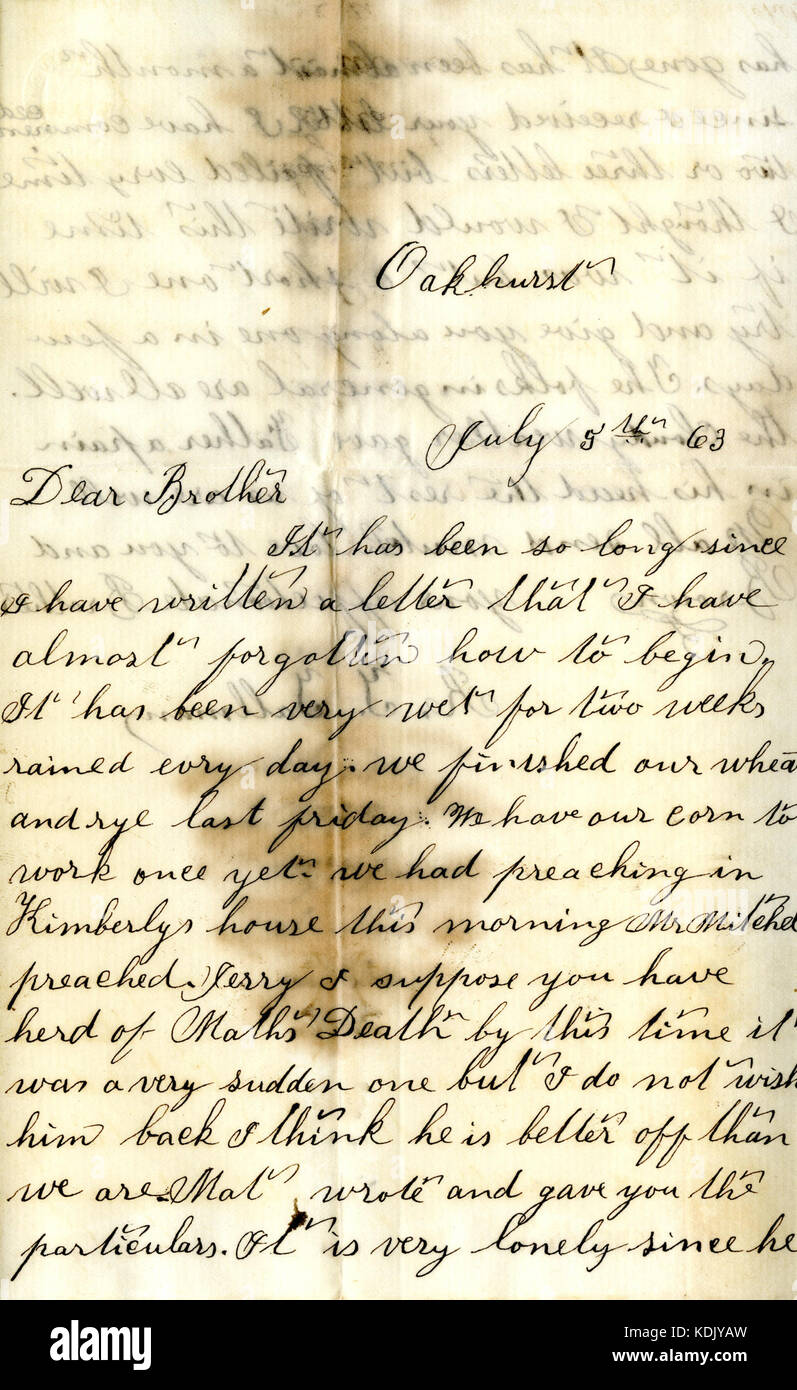 Oakhurst
July 5th 63
Dear Brother
It has been so long since
I have written a letter that I have
almost forgotten how to begin.
It has been very wet for two weeks
rained evry day. we finished our wheat
and rye last friday. We have our corn to
work once yet. we had preaching in
Kimberlys house this morning Mr Mitchel
preached. Jerry I suppose you have
herd of Maths Death by this time it
was a very sudden one but I do not wish
him back I think he is better off than
we are. Mat wrote and gave you the
particulars. It is very lonely since he
alamy
Image ID: KDJYAW
www.alamy.com